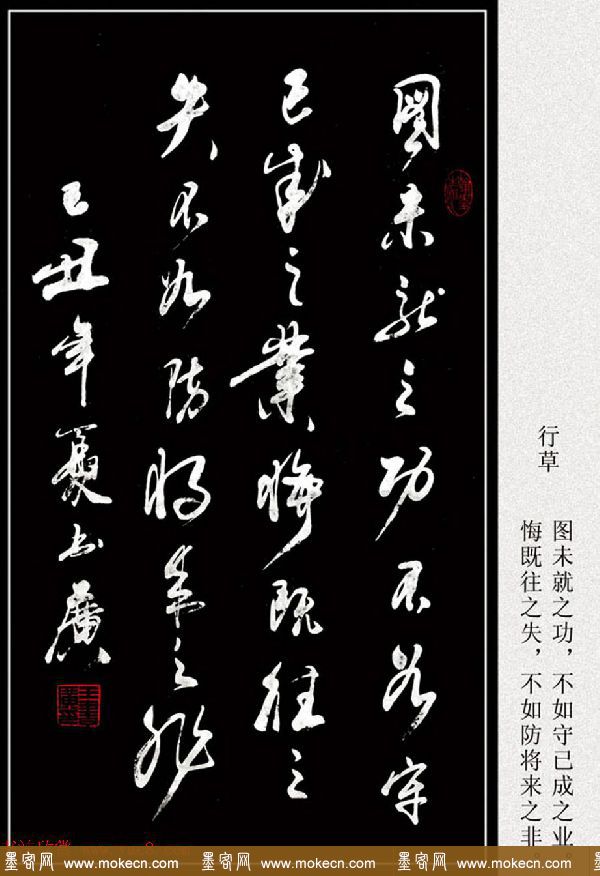 圖未就之功不如守
已成之業悔既往之
失不如防將來之非
己丑年夏書廣
行草
图未就之功，不如守已成之业。
悔既往之失，不如防将来之非
墨客网 www.mokecn.com 墨客网 www.mokecn.com 墨客网 www.mokecn.com